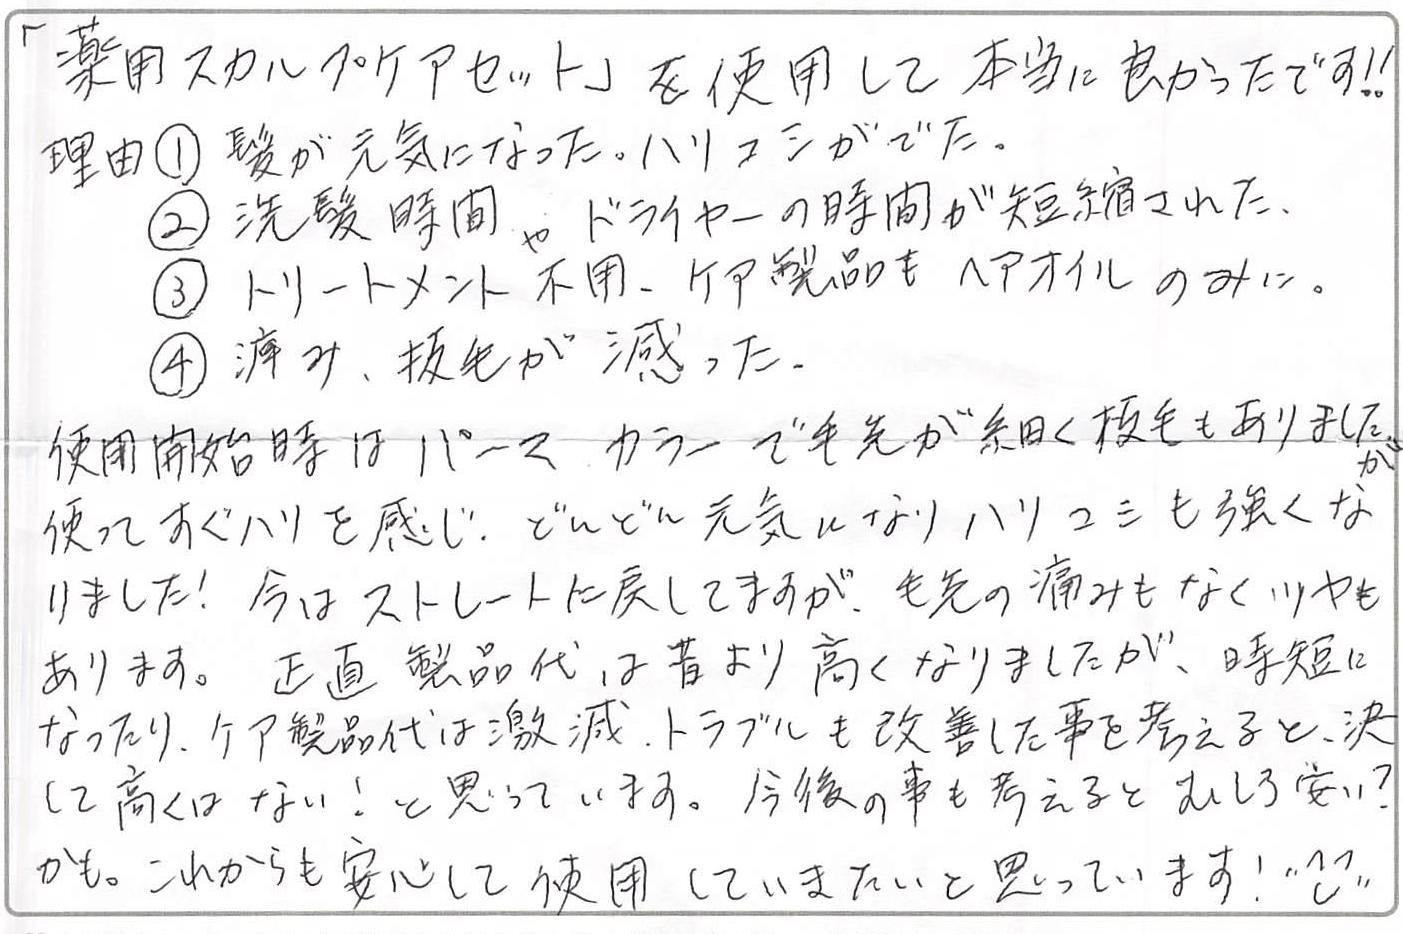 「薬用スカルプケアセット」を使用して本当に良かったです!!
理由① 髪が元気になった。ハリコシがでた。
② 洗髪時間やドライヤーの時間が短縮された、
③ トリートメント不用、ケア製品もヘアオイルのみに。
④ 痛み、抜毛が減った、
使用開始時はパーマ カラーで毛先が細く抜毛もありましたが
使ってすぐハリを感じ、どんどん元気になりハリコシも強くな
りました！ 今はストレートに戻してますが、毛先の痛みもなくツヤも
あります。 正直 製品代は昔より高くなりましたが、時短に
なったり、ケア製品代は激減、トラブルも改善した事を考えると、決
して高くはない！と思っています。今後の事も考えるとむしろ安い？
かも。これからも安心して使用していきたいと思っています！